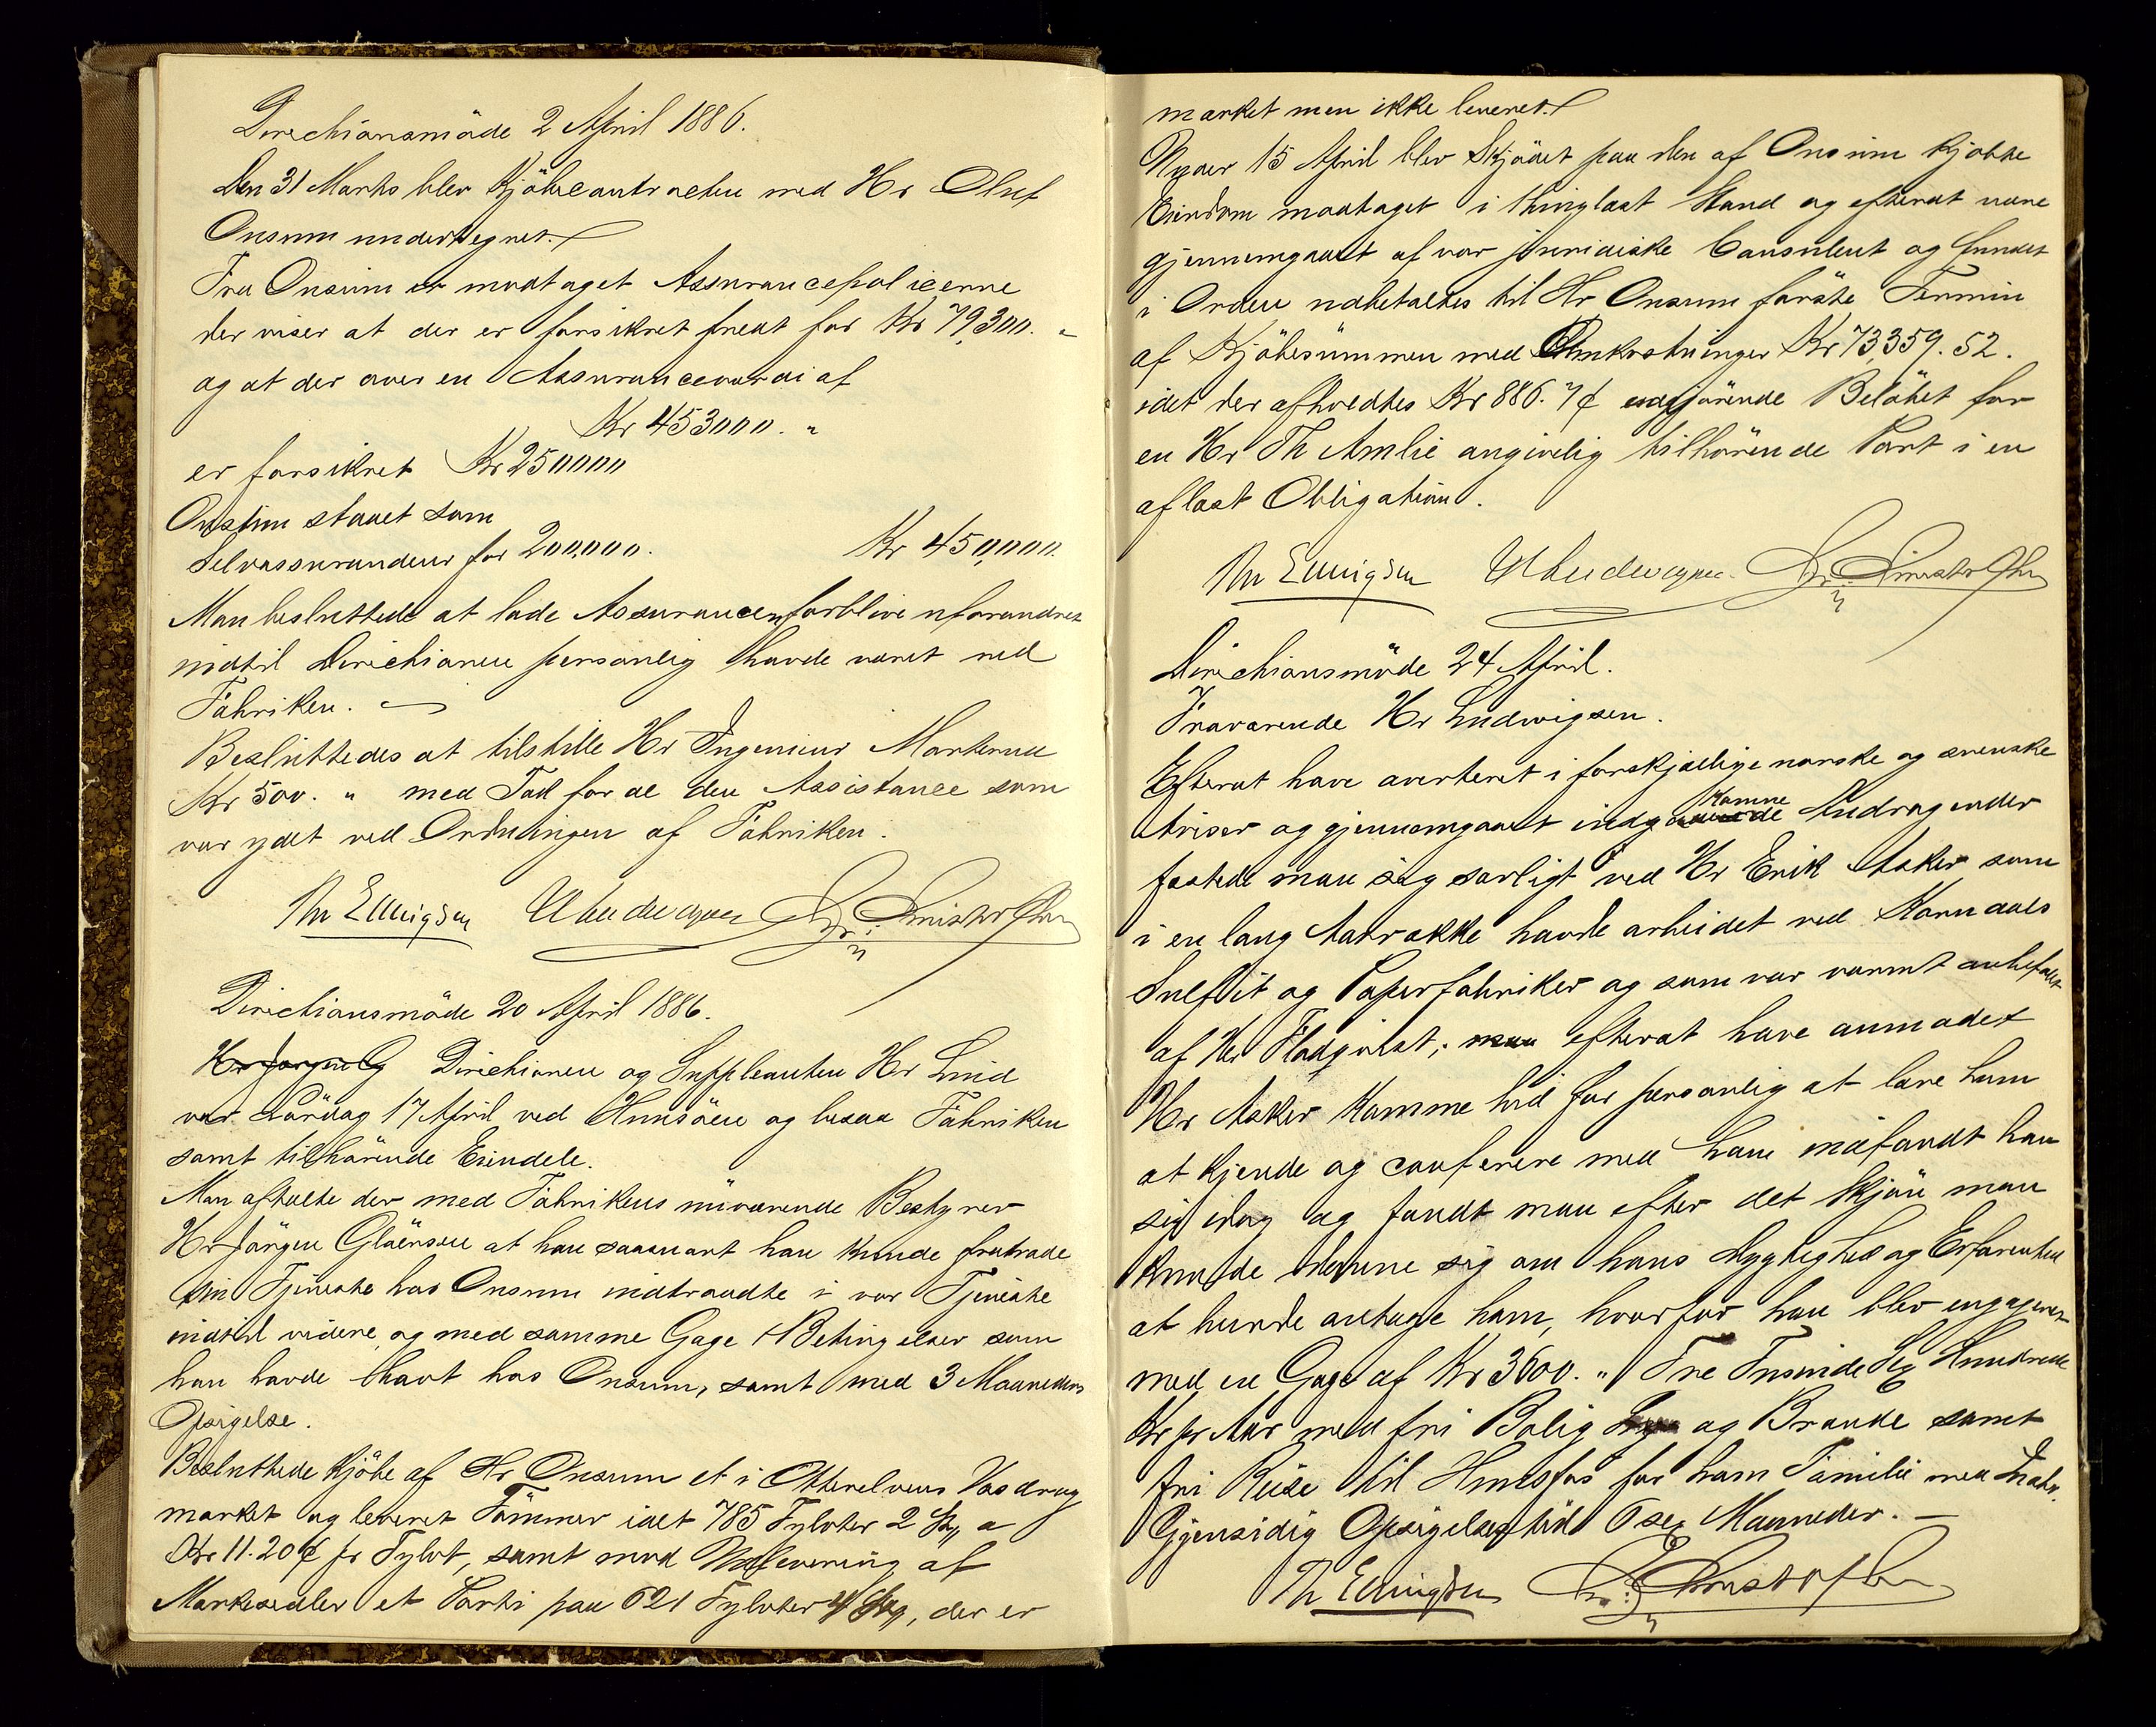 Direchionsmöde 2 April 1886.
Den 31 Marts blev Kjöbecontracten med Hr Oluf
Onsum undertegnet.
Fra Onsum er modtaget Assurancepolicerne
der viser at der er forsikret fredt for Kr 79,300. "
og at der over en Assuranceværdi af
Kr 453000. "
er forsikret Kr 250000
Onsum staaet som
Selvassurandeur for 200,000. Kr 450,000.
Man besluttede at lade Assurancen forblive uforandret
indtil Direchionen personlig havde været ved
Fabriken.
Besluttedes at tilstille Hr Ingenieur Markerud
Kr 500. " med Tak for al den Assistance som
var ydet ved Ordningen af Fabriken.
Th Ellingsen Ludwigsen Chr. Christophersen
Direchionsmöde 20 April 1886.
Hr Jörgen G Direchionen og Suppleanten Hr Lind
var Lördag 17 April ved Hunsöen og besaa Fabriken
samt tilhörende Eiendele.
Man aftalte der med Fabrikens nuværende Bestyrer
Hr Jörgen Glöersen at han saasnart han kunde fratræde
sin Tjeneste hos Onsum indtraadte i vor Tjeneste
indtil videre og med samme Gage & Betingelser som
han havde havt hos Onsum, samt med 3 Maaneders
Opsigelse.
Besluttede Kjöbe af Hr Onsum et i Otterelvens Vasdrag
mærket og leveret Tömmer ialt 785 Tylvter 2 Stk a
Kr 11.20 ¢ pr Tylvt, samt mod Udlevering af
Mærkesedler et Parti paa 621 Tylvter 4 Stk, der er
mærket men ikke leveret.
Under 15 April blev Skjödet paa den af Onsum kjöbte
Eiendom modtaget i thinglæst Stand og efterat være
gjennemgaaet af vor juridiske Consulent og fundet
i Orden udbetaltes til Hr Onsum förste Termin
af Kjöbesummen med Omkostninger Kr 73,359. 52.
idet der afholdtes Kr 886. 7 ¢ udgjörende Belöbet for
en Hr Th Amlie angivelig tilhörende Part i en
aflæst Obligation.
Th Ellingsen Ludwigsen Chr. Christophersen
Direchionsmöde 24 April.
Fraværende Hr Ludwigsen.
Efterat have averteret i forskjellige norske og svenske
Aviser og gjennemgaaet indgaaende komne Andragender
fæstede man sig særligt ved Hr Erik Asker som
i en lang Aarrække havde arbeidet ved Korndals
Sulfit og Papirfabriker og som var varmt anbefalet
af Hr Flodqvist; man efterat have anmodet
Hr Asker komme hid for personlig at lære ham
at kjende og conferere med ham indfandt han
sig idag og fandt man efter det Skjön man
kunde danne sig om hans Dygtighed og Erfarenhed
at burde antage ham, hvorfor han blev engageret
med en Gage af Kr 3600. " Tre Tusinde Sex Hundrede
Kr pr Aar med fri Bolig Lys og Brænde samt
fri Reise til Hunsfos for ham Familie med Indbo.
Gjensidig Opsigelsestid 6 sex Maaneder. —
Th Ellingsen Chr. Christophersen